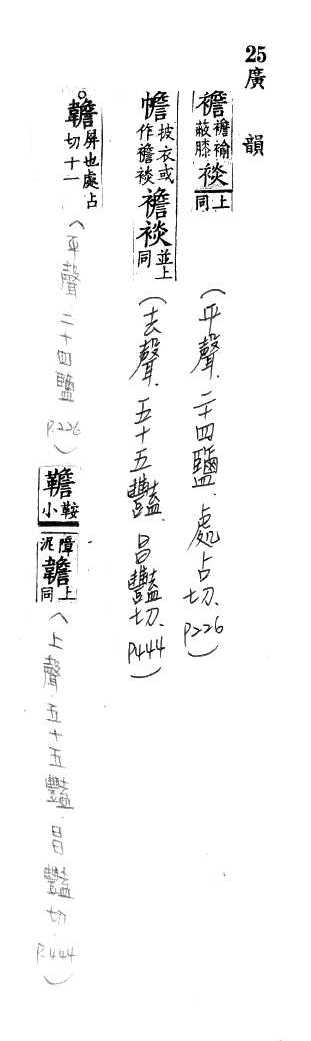 25 廣韻
襜 襜褕蔽膝 裧 上同 (平聲．二十四鹽．處占切．P226)
幨 披衣或作襜裧 襜裧 並上同 (去聲．五十五豔．昌豔切．P444)
韂 屏也處占切十一 (平聲 二十四鹽 P.226) 鞍小障泥 上同 (上聲 五十五豔．昌豔切 P.444)